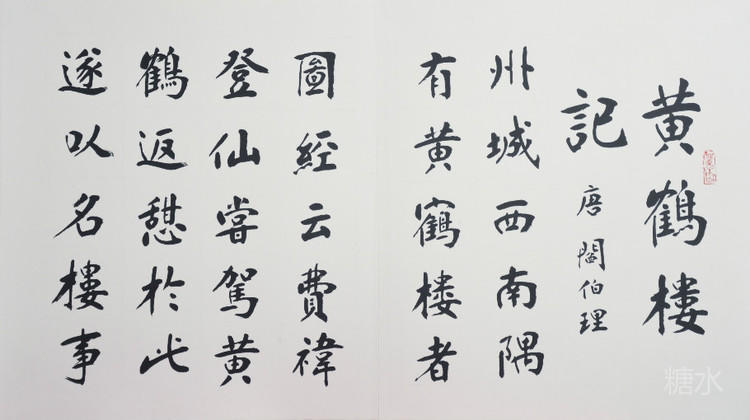 黄鶴樓
記
唐 閻伯理
州城西南隅
有黄鶴楼者
圖經云費禕
登仙嘗駕黄
鶴返憇於此
遂以名樓事
糖水